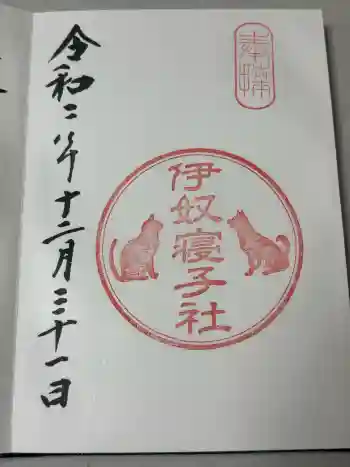 奉拝
伊奴寝子社
令和二年十二月三十一日